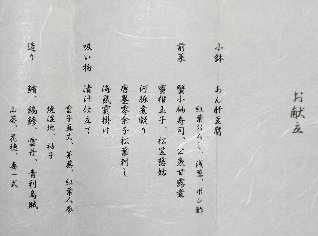 お献立
小鉢 あん肝豆腐
紅葉おろし、浅葱、ポン酢
前菜 蟹小袖寿司、公魚甘露煮
蜜柑玉子、松笠慈姑
河豚煮凝り
唐墨零余子松葉刺し
海鼠霙掛け
吸い物 清汁仕立て
雲子真丈、茅茸、紅葉人参
焼湿地、柚子
造り 鮪、縞鯵、雲丹、青利烏賊
山葵、花穂、妻一式